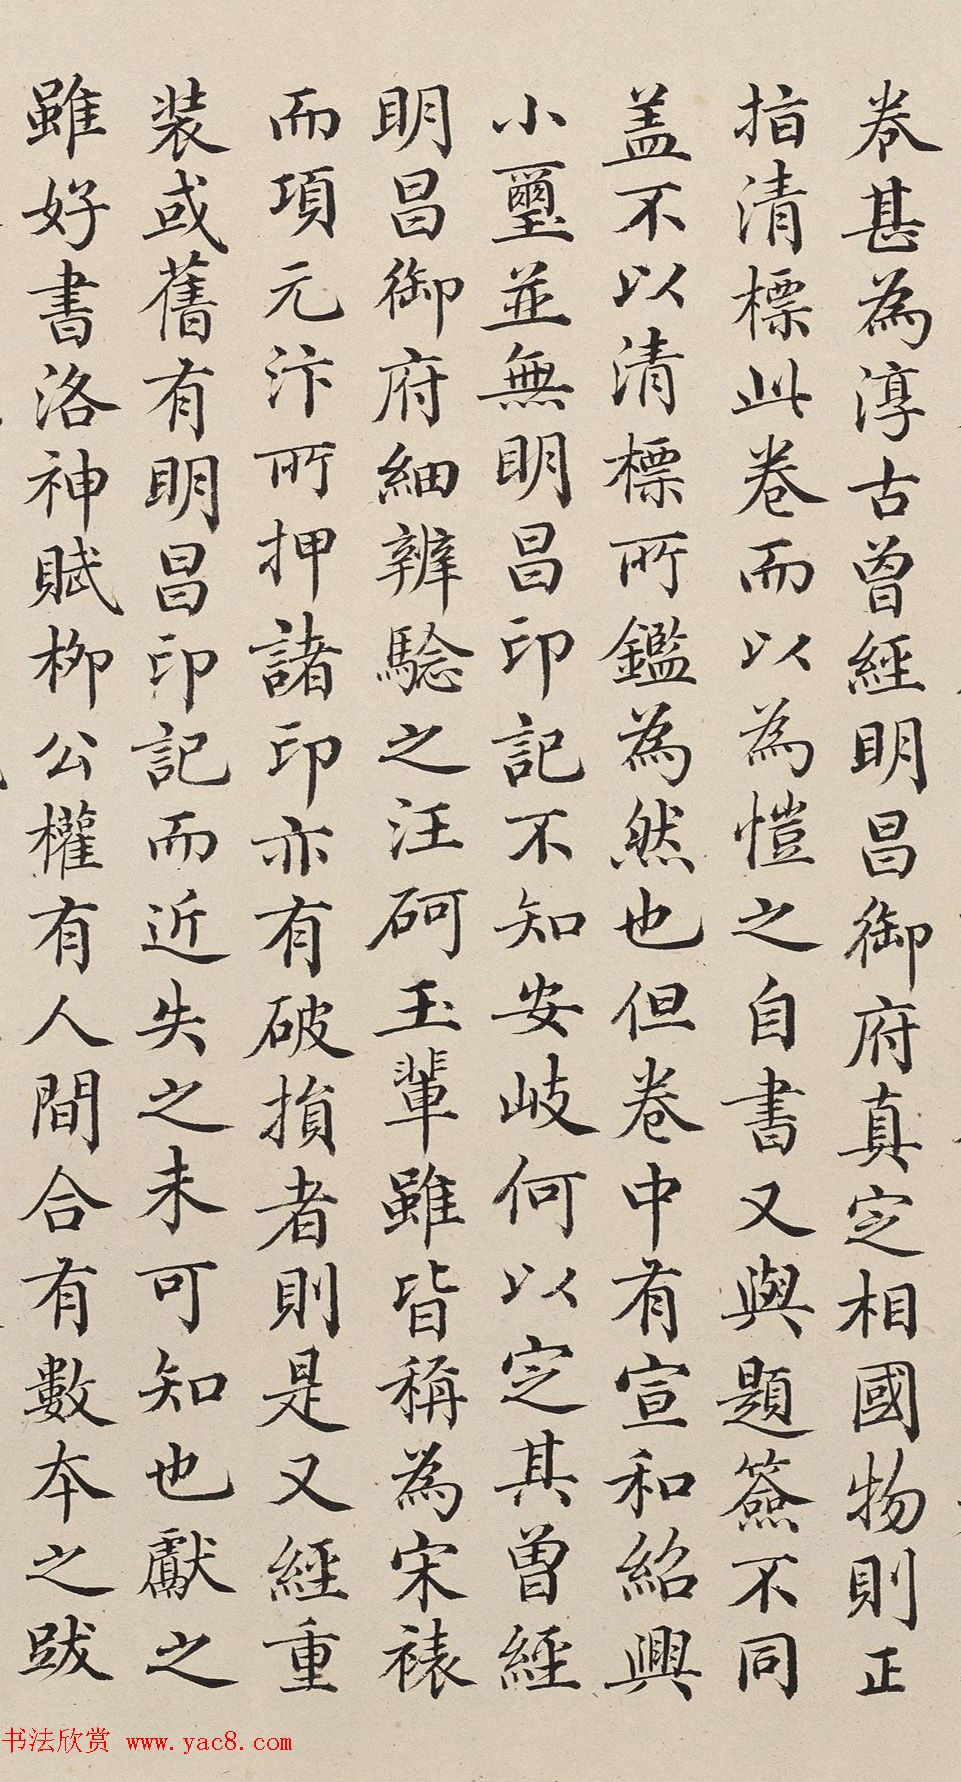 卷甚為淳古曾經明昌御府真定相國物則正
指清標此卷而以為愷之自書又與題簽不同
盖不以清標所鑑為然也但卷中有宣和紹興
小璽並無明昌印記不知安岐何以定其曾經
明昌御府細辨驗之汪砢玉輩雖皆稱為宋裱
而項元汴所押諸印亦有破損者則是又經重
装或舊有明昌印記而近失之未可知也獻之
雖好書洛神賦柳公權有人間合有數本之跋
书法欣赏 www.yac8.com